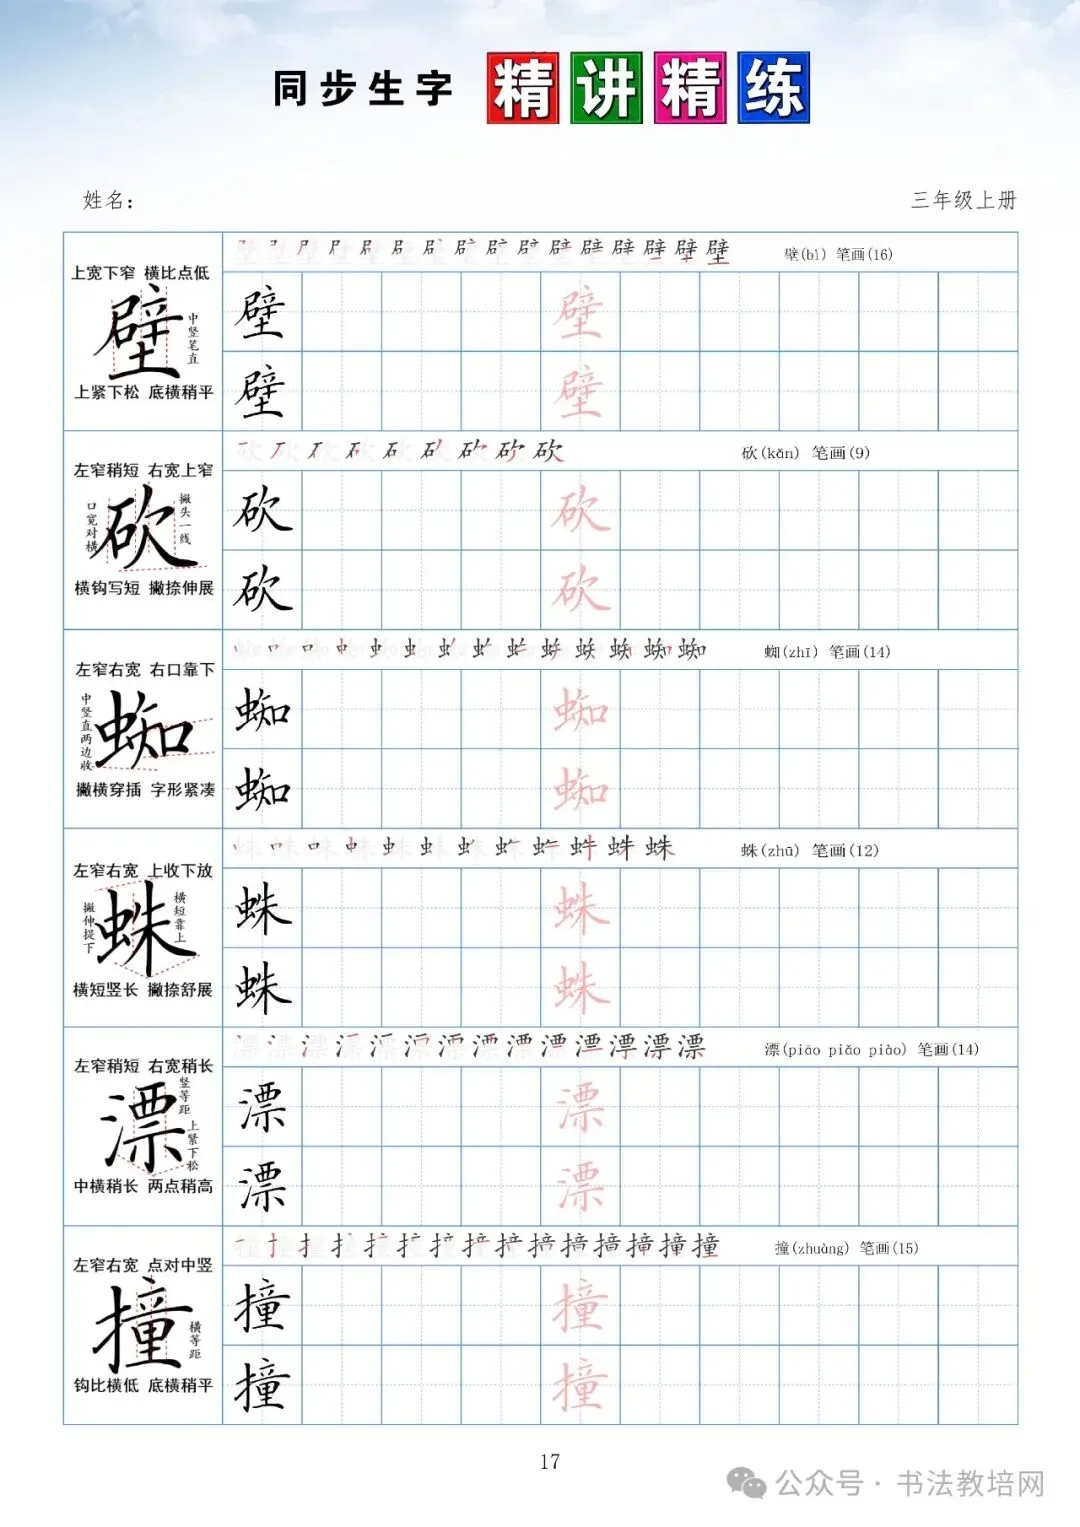 同步生字 精讲精练
姓名：
三年级上册
上宽下窄 横比点低
壁
中竖笔直
上紧下松 底横稍平
壁(bì) 笔画(16)
壁 壁
壁 壁
左窄稍短 右宽上窄
口宽对横
砍
撇头一线
横钩写短 撇捺伸展
砍(kǎn) 笔画(9)
砍 砍
砍 砍
左窄右宽 右口靠下
中竖直两边收
蜘
撇横穿插 字形紧凑
蜘(zhī) 笔画(14)
蜘 蜘
蜘 蜘
左窄右宽 上收下放
撇伸提下
蛛
横短靠上
横短竖长 撇捺舒展
蛛(zhū) 笔画(12)
蛛 蛛
蛛 蛛
左窄稍短 右宽稍长
漂
竖等距
上紧下松
中横稍长 两点稍高
漂(piāo piǎo piào) 笔画(14)
漂 漂
漂 漂
左窄右宽 点对中竖
撞
横等距
钩比横低 底横稍平
撞(zhuàng) 笔画(15)
撞 撞
撞 撞
17
公众号·书法教培网